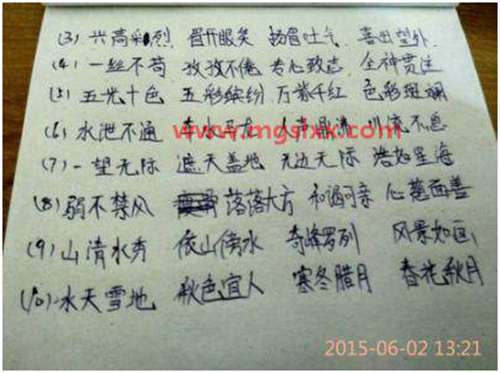 (3) 兴高彩烈 眉开眼笑 扬眉吐气 喜出望外
(4) 一丝不苟 孜孜不倦 专心致志 全神贯注
(5) 五光十色 五彩缤纷 万紫千红 色彩斑斓
(6) 水泄不通 车水马龙 人声鼎沸 川流不息
www.mgsixx.com
(7) 一望无际 遮天盖地 无边无际 浩如星海
(8) 弱不禁风 落落大方 和谒可亲 心慈面善
(9) 山清水秀 依山傍水 奇峰罗列 风景如画
(10) 水天雪地 秋色宜人 寒冬腊月 春花秋月
2015-06-02 13:21